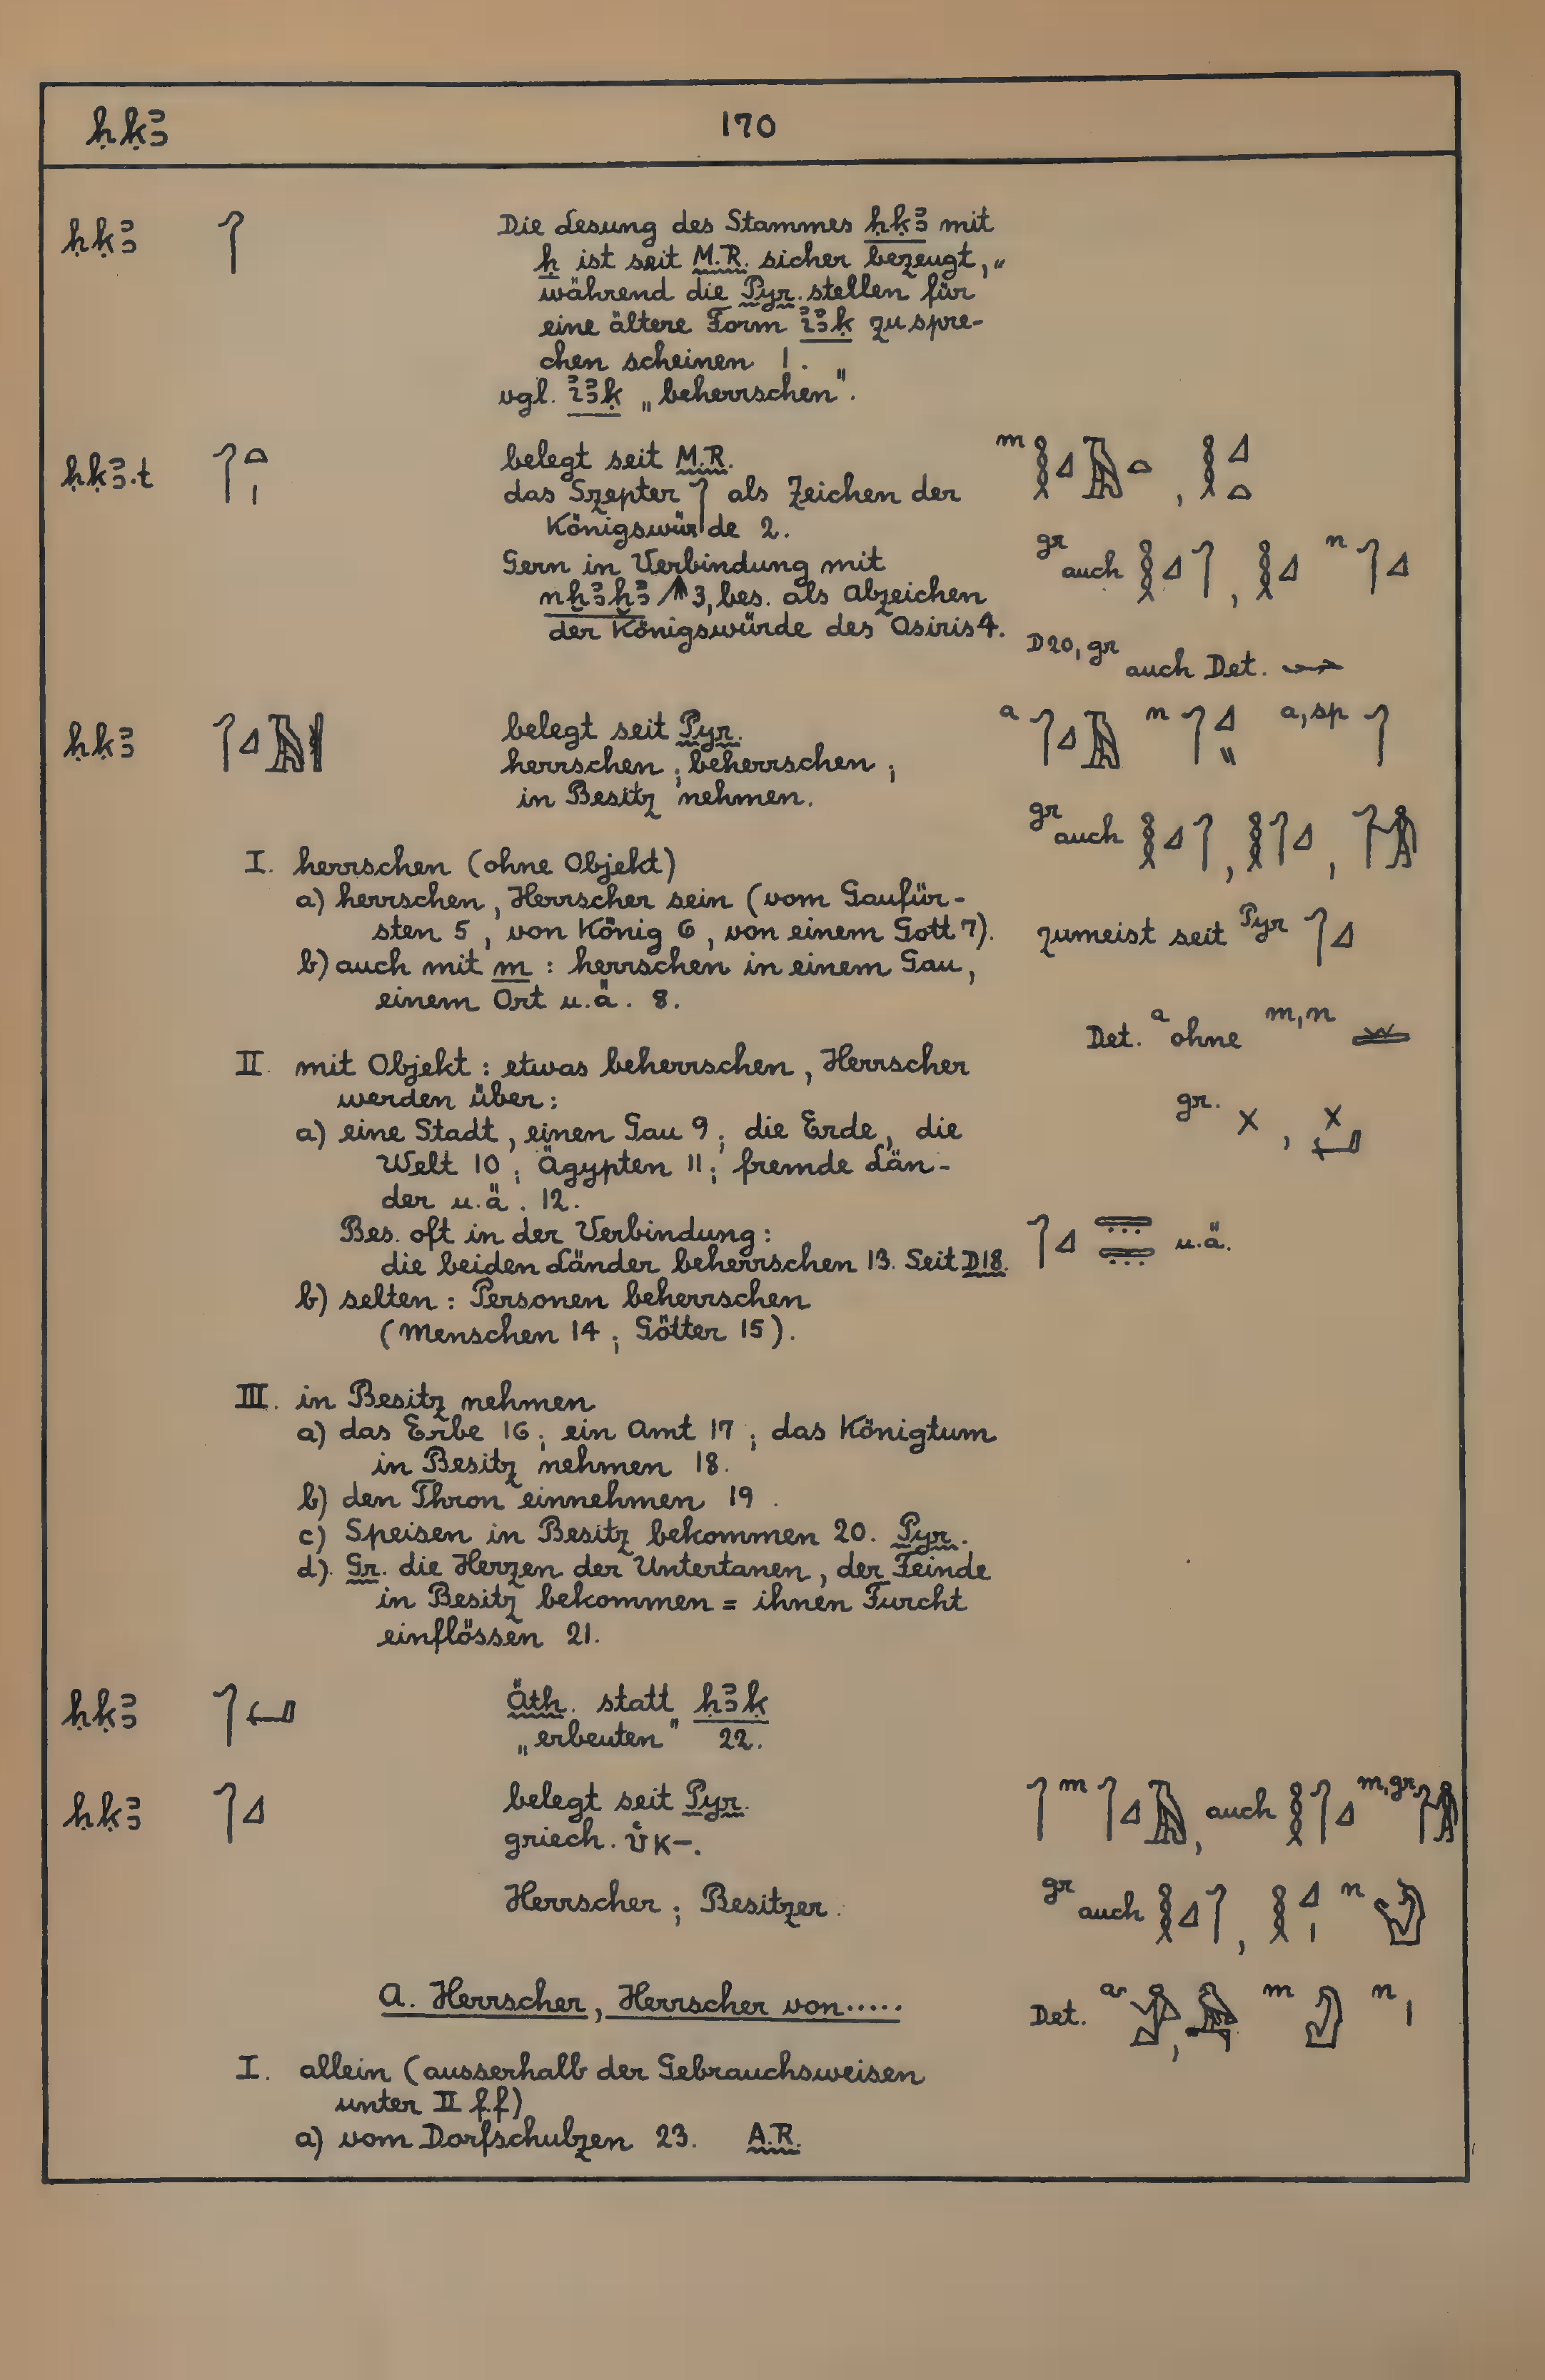 ḥḳꜣ
170
ḥḳꜣ 𓋾
Die Lesung des Stammes ḥḳꜣ mit
ḥ ist seit M.R. sicher bezeugt,
während die Pyr. stellen für
eine ältere Form ꜣḳ zu spre-
chen scheinen 1.
vgl. ꜣḳ „beherrschen".
ḥḳꜣ.t 𓋾𓏏𓏤
belegt seit M.R.
das Szepter 𓋾 als Zeichen der
Königswürde 2.
Gern in Verbindung mit
nḫꜣḫꜣ 3, bes. als Abzeichen
der Königswürde des Osiris 4.
m 𓎛𓈎𓏏, 𓎛𓈎𓏏
gr auch 𓎛𓈎𓋾, 𓎛𓈎 n 𓋾𓈎
D20, gr auch Det.
ḥḳꜣ 𓋾𓈎
belegt seit Pyr.
herrschen; beherrschen;
in Besitz nehmen.
a 𓋾𓈎 n 𓋾𓈎 a, sp 𓋾
gr auch 𓎛𓈎𓋾, 𓎛𓋾𓈎,
zumeist seit Pyr 𓋾𓈎
Det. a ohne m, n 𓏛
gr. 𓏴, 𓏴𓂡
I. herrschen (ohne Objekt)
a) herrschen, Herrscher sein (vom Gaufür-
sten 5, von König 6, von einem Gott 7).
b) auch mit m : herrschen in einem Gau,
einem Ort u.ä. 8.
II. mit Objekt : etwas beherrschen, Herrscher
werden über :
a) eine Stadt, einen Gau 9; die Erde, die
Welt 10; Ägypten 11; fremde Län-
der u.ä. 12.
Bes. oft in der Verbindung :
die beiden Länder beherrschen 13. Seit D18. 𓋾𓈎𓇿𓇿 u.ä.
b) selten : Personen beherrschen
(Menschen 14; Götter 15).
III. in Besitz nehmen
a) das Erbe 16; ein Amt 17; das Königtum
in Besitz nehmen 18.
b) den Thron einnehmen 19.
c) Speisen in Besitz bekommen 20. Pyr.
d). Gr. die Herzen der Untertanen, der Feinde
in Besitz bekommen = ihnen Furcht
einflössen 21.
ḥḳꜣ 𓋾𓂡
Äth. statt ḥꜣḳ
„erbeuten" 22.
ḥḳꜣ 𓋾𓈎
belegt seit Pyr.
griech. ὑκ-.
Herrscher; Besitzer.
𓋾 m 𓋾𓈎, auch 𓎛𓋾𓈎 m, gr
gr auch 𓎛𓈎𓋾, 𓎛𓈎𓏤 n
Det. a m n 𓏤
A. Herrscher, Herrscher von.....
I. allein (ausserhalb der Gebrauchsweisen
unter II f.f)
a) vom Dorfschulzen 23. A.R.